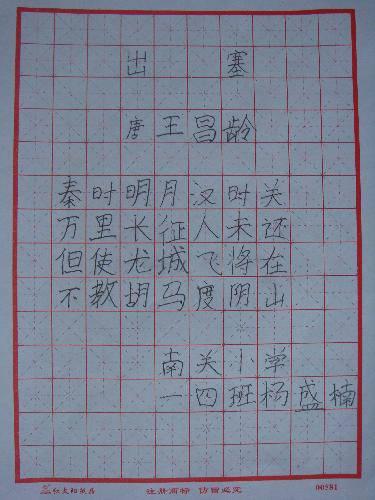 出塞
唐王昌龄
秦时明月汉时关
万里长征人未还
但使龙城飞将在
不教胡马度阴山
南关小学
一四班杨盛楠
红太阳纸品 注册商标 仿冒必究 00581